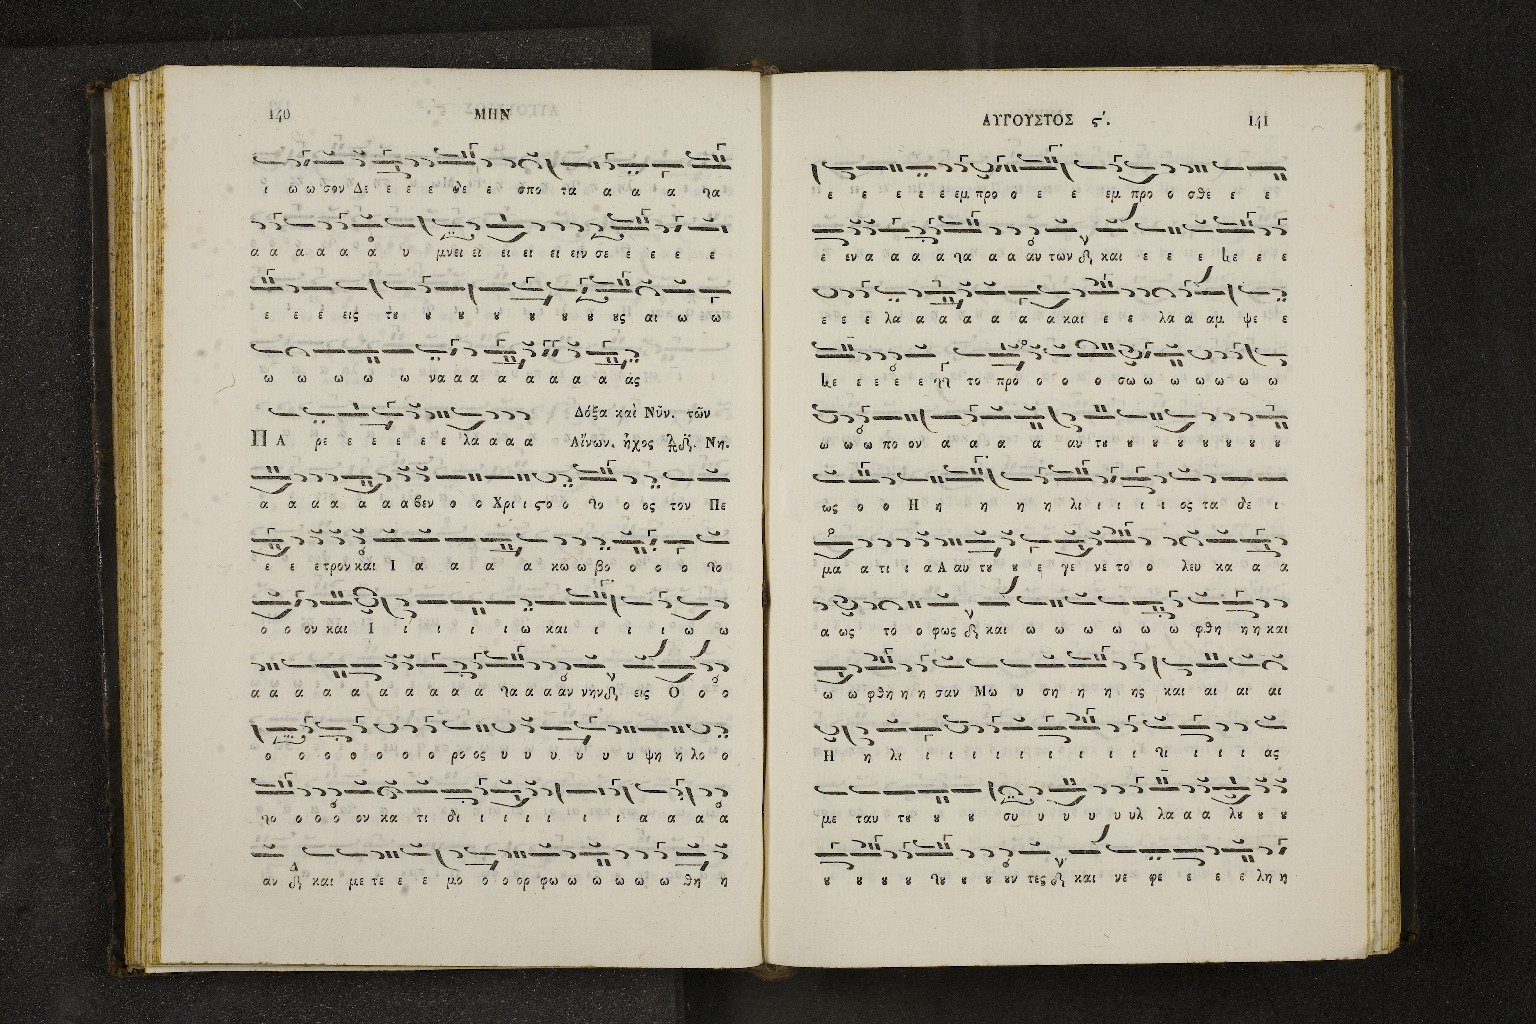 140
ΜΗΝ
ι ω ω σον Δε ε ε ε ϑε ε σπο τα α α α τα
α α α α α υ μνει ει ει ει ει ειν σε ε ε ε ε
ε ε ε εις τȣ ȣ ȣ ȣ ȣ ȣ ȣ ȣς αι ω ω
ω ω ω ω ω να α α α α α α α άς
Δόξα καὶ Νῦν. τῶν
ΠΑ ρε ε ε ε ε ε λα α α α
Αἴνων. ἦχος Νη.
α α α α α α α βεν ο ο Χρι ι ςο ο το ο ος τον Πε
ε ε ε τρον και Ι α α α α κω ω βο ο ο ο το
ο ο ον και Ι ι ι ι ι ι ω και ι ι ι ω ω
α α α α α α α α α α τα α α αν νην εις Ο ο ο
ο ο ο ο ο ο ο ρο ος υ υ υ υ υ υ ψη η λο ο
το ο ο ο ον κα τι δι ι ι ι ι ι ι α α α α
αν και με τε ε ε μο ο ο ορ φω ω ω ω ω ω ϑη η
ΑΥΓΟΥΣΤΟΣ ς΄.
141
ε ε ε ε ε εμ προ ο ε ε εμ προ ο σθε ε ε
ε εν α α α α τα α α αν των και ε ε ε ε ε ε
ε ε ε λα α α α α α α και ε ε λα α αμ ψε ε
ε ε ε ε ε το προ ο ο ο σω ω ω ω ω ω ω
ω ω ω πο ον α α α α αυ τȣ ȣ ȣ ȣ ȣ ȣ ȣ ȣ
ὡς ο ο Η η η η η λι ι ι ι ι ος τα δε ι
μα α τι ι α Α αυ τȣ ȣ ε γε νε το ο λευ κα α α
α ως το ο φως και ω ω ω ω ω ω φθη η η και
ω ω φθη η η σαν Μω υ ση η η ης και αι αι αι
Η η λι ι ι ι ι ι ι ι ι τι ι ι ι ας
με ταυ τȣ ȣ ȣ συ υ υ υ υ υλ λα α α λȣ ȣ ȣ
ȣ ȣ ȣ ȣ τȣ ȣ ȣ ȣν τες και νε φε ε ε ε λη η